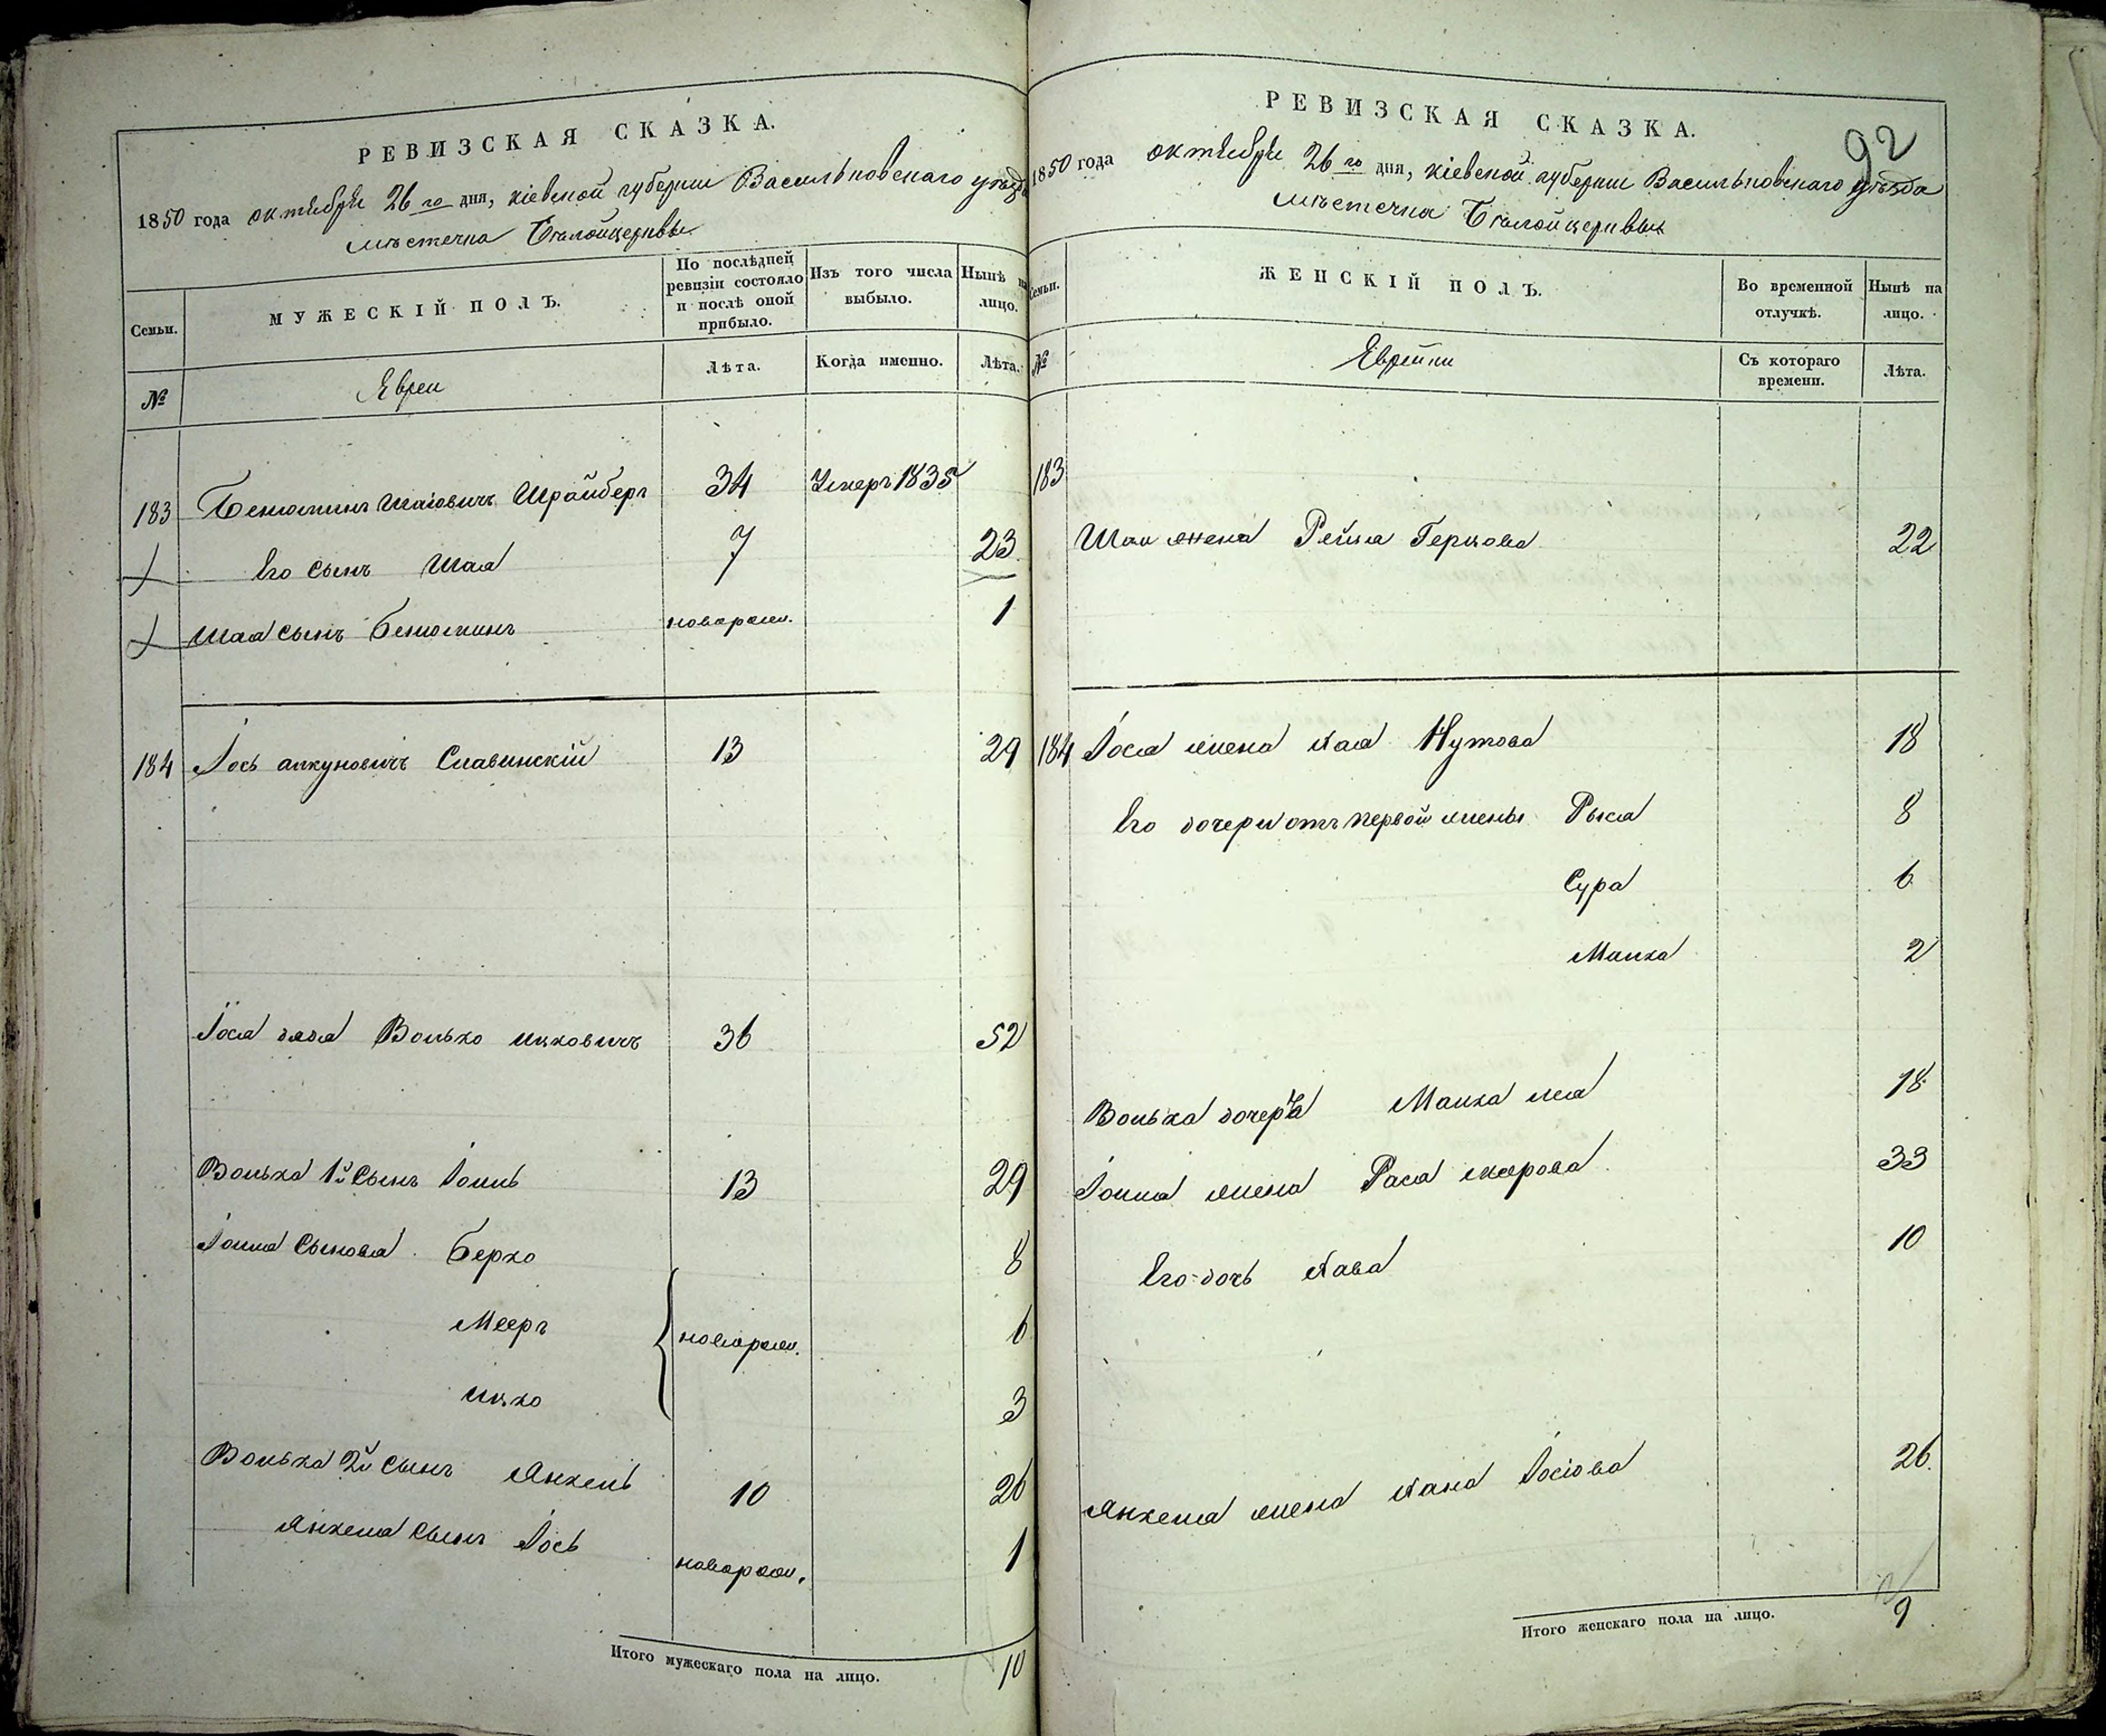 РЕВИЗСКАЯ СКАЗКА.
1850 года октября 26го дня, кіевской губерніи Васильковскаго уезда
мѣстечка Бѣлойцеркви
Семьи.
МУЖЕСКІЙ ПОЛЪ.
По послѣдней
ревизіи состояло
и послѣ оной
прибыло.
Изъ того числа
выбыло.
Нынѣ на
лицо.
№
Евреи
Лѣта.
Когда именно.
Лѣта.
183 Бенюминъ Шаіовичъ Шрайберг 34 Умеръ 1835
Его сынъ Шая 7 23
Шая сынъ Бенюминъ новорож. 1
184 Іось Славинскій 13 29
Іося дядя Волько Ицковичъ 36 52
Волька 1й сынъ Іойль 13 29
Іойля сыновья Берко 8
Мееръ новорож. 6
Ицко 3
Волька 2й сынъ Янкель 10 26
Янкеля сынъ Іось новорож. 1
Итого мужескаго пола на лицо. 10
92
РЕВИЗСКАЯ СКАЗКА.
1850 года октября 26го дня, кіевской губерніи Васильковскаго уѣзда
мѣстечка Бѣлойцеркви
Семьи.
ЖЕНСКІЙ ПОЛЪ.
Во временной
отлучкѣ.
Нынѣ на
лицо.
№
Еврейки
Съ котораго
времени.
Лѣта.
183
Шаи жена Рейза Герцова 22
184 Іося жена Хая Нутова 18
Его дочери отъ первой жены Рыся 8
Сура 6
Малка 2
Волька дочерь Малка 18
Іойля жена Рася Меерова 33
Его дочь Хава 10
Янкеля жена Хана Іосіова 26
Итого женскаго пола на лицо. 9